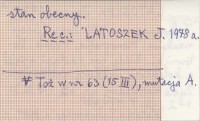 stan obecny.
Rec.: LATOSZEK J. 1978 a.
* Toż w nr 63 (15 III), mutacja A.